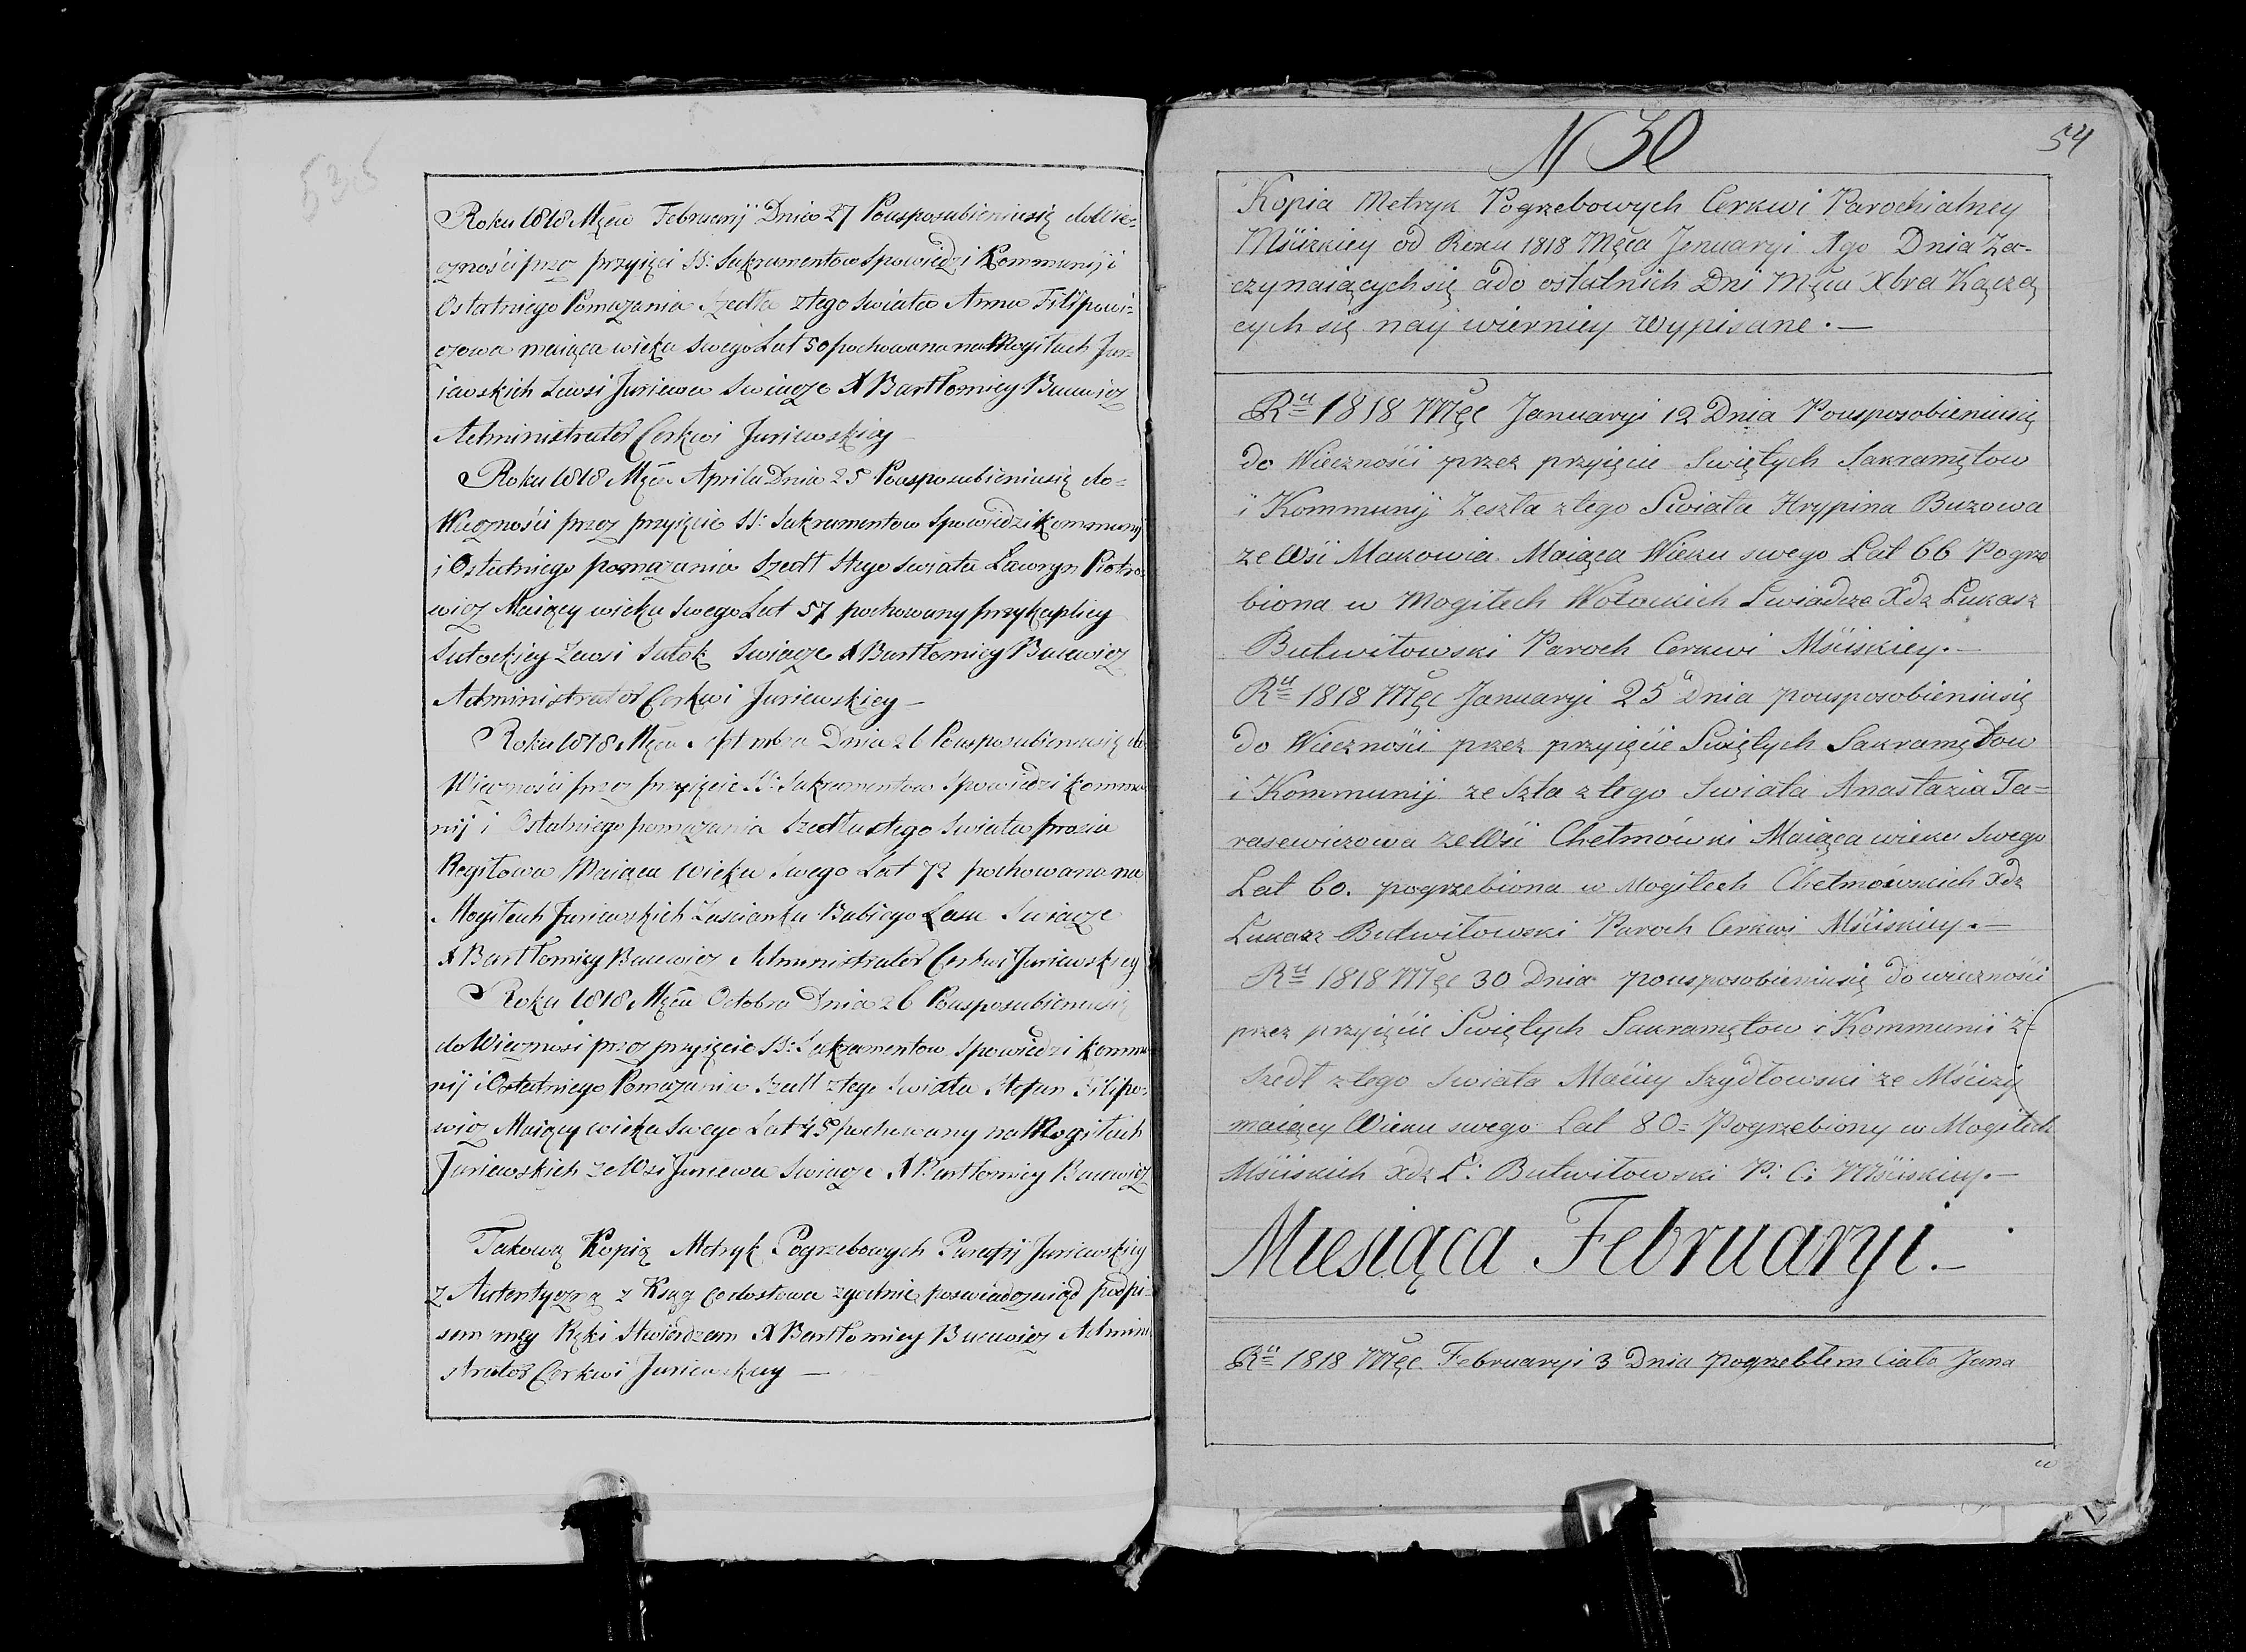 53,5
Roku 1818 Mꝫca Februarij Dnia 27 Pousposobieniusię doWie-
cznosci przez przyięci SS: Sakramentow Spowiedzi Kommunij i
Ostatniego Pomazania Szedła ztego Swiata Anna Filipowi-
czowa maiąca wieku Swego Lat 50 pochowana na Mogiłach Jur-
iewskich Zewsi Juriewa Swiacze X Bartłomiey Bucewicz
Administrator Cerkwi Juriewskiey
Roku 1818 Męca Aprila Dnia 25 Pousposobieniusię do-
Wieczności przez przyięcie SS: Sakramentow Spowiedzi Kommunij
i Ostatniego pomazania Szedł Stego Swiata Ławryn Piotro-
wicz Maiący wieku Swego Lat 57 pochowany przykaplicy
Sutockiey Zewsi Sutok Swiacze X Bartłomiey Bucewicz
Administrator Cerkwi Juriewskiey
Roku 1818 Męca Septmbra Dnia 26 Pousposobieniusię do
Wieczności przez przyięcie SS: Sakramentow Spowiedzi Kommu-
nij i Ostatniego pomazania Szedła stego Swiata
Regiłowa Maiąca Wieku Swego Lat 72 pochowana na
Mogiłach Juriewskich Zascianku Babiego Lasu Swiacze
X Bartłomiey Bucewicz Administrator Cerkwi Juriewskiey
Roku 1818 Męca Octobra Dnia 26 Pousposobieniusię
doWiecznosi przez przyięcie SS: Sakramentow Spowiedzi Kommu
nij i Ostatniego Pomazania Szedł ztego Swiata Stefan Filipo-
wicz Maiący wieku Swego Lat 45 pochowany na Mogiłach
Juriewskich zeWsi Juriewa Swiacze X Bartłomiey Bucewicz
Takową Kopią Metryk Pogrzebowych Parafij Juriewskiey
z Autentyczną z Ksąg codosłowa zgodnie poswiadczaiąc podpi-
sem mey Ręki Stwierdzam X Bartłomiey Bucewicz Admini
strator Cerkwi Juriewskiey
N 30
54
Kopia Metryk Pogrzebowych Cerkwi Parochialney
Mścizkiey od Roku 1818 Męca Januaryi 1go Dnia Za-
czynaiącychsię ado ostatnich Dni Męca Xbra Kączą
cych się nay wierniey Wypisane.—
Ru 1818 Męc Januaryi 12 Dnia Pousposobieniusię
do Wieczności przez przyięcie Swiętych Sakramętow
i Kommunij Zeszła ztego Swiata Hrypina Buzowa
ze Wsi Makowia Maiąca Wieku swego Lat 66 Pogrze
biona w Mogiłech Wołockich Swiadcze Xdz Łukasz
Butwiłowski Paroch Cerkwi Mściskiey.—
Ru 1818 Męc Januaryi 25 Dnia pousposobieniusię
do Wieczności przez przyięcie Swiętych Sakramętow
i Kommunij ze szła ztego Swiata Anastazia Ta=
rasewiczowa zeWsi Chełmówki Maiąca wieku Swego
Lat 60. pogrzebiona w Mogiłech Chełmówskich Xdz
Łukasz Butwiłowski Paroch Cerkwi Mściskiey.—
Ru 1818 Męc 30 Dnia pousposobieniusię do wieczności
przez przyięcie Swiętych Sakramętow i Kommunii z=
szedł ztego Swiata Maciey Szydłowski ze Mścizy
maiący Wieku swego Lat 80= Pogrzebiony w Mogiłech
Mściskich Xdz Ł: Butwiłowski P: C: Mściskiey.—
Miesiąca Februaryi.—
Ru 1818 Męc Februaryi 3 Dnia pogrzebłem Ciało Jana
w